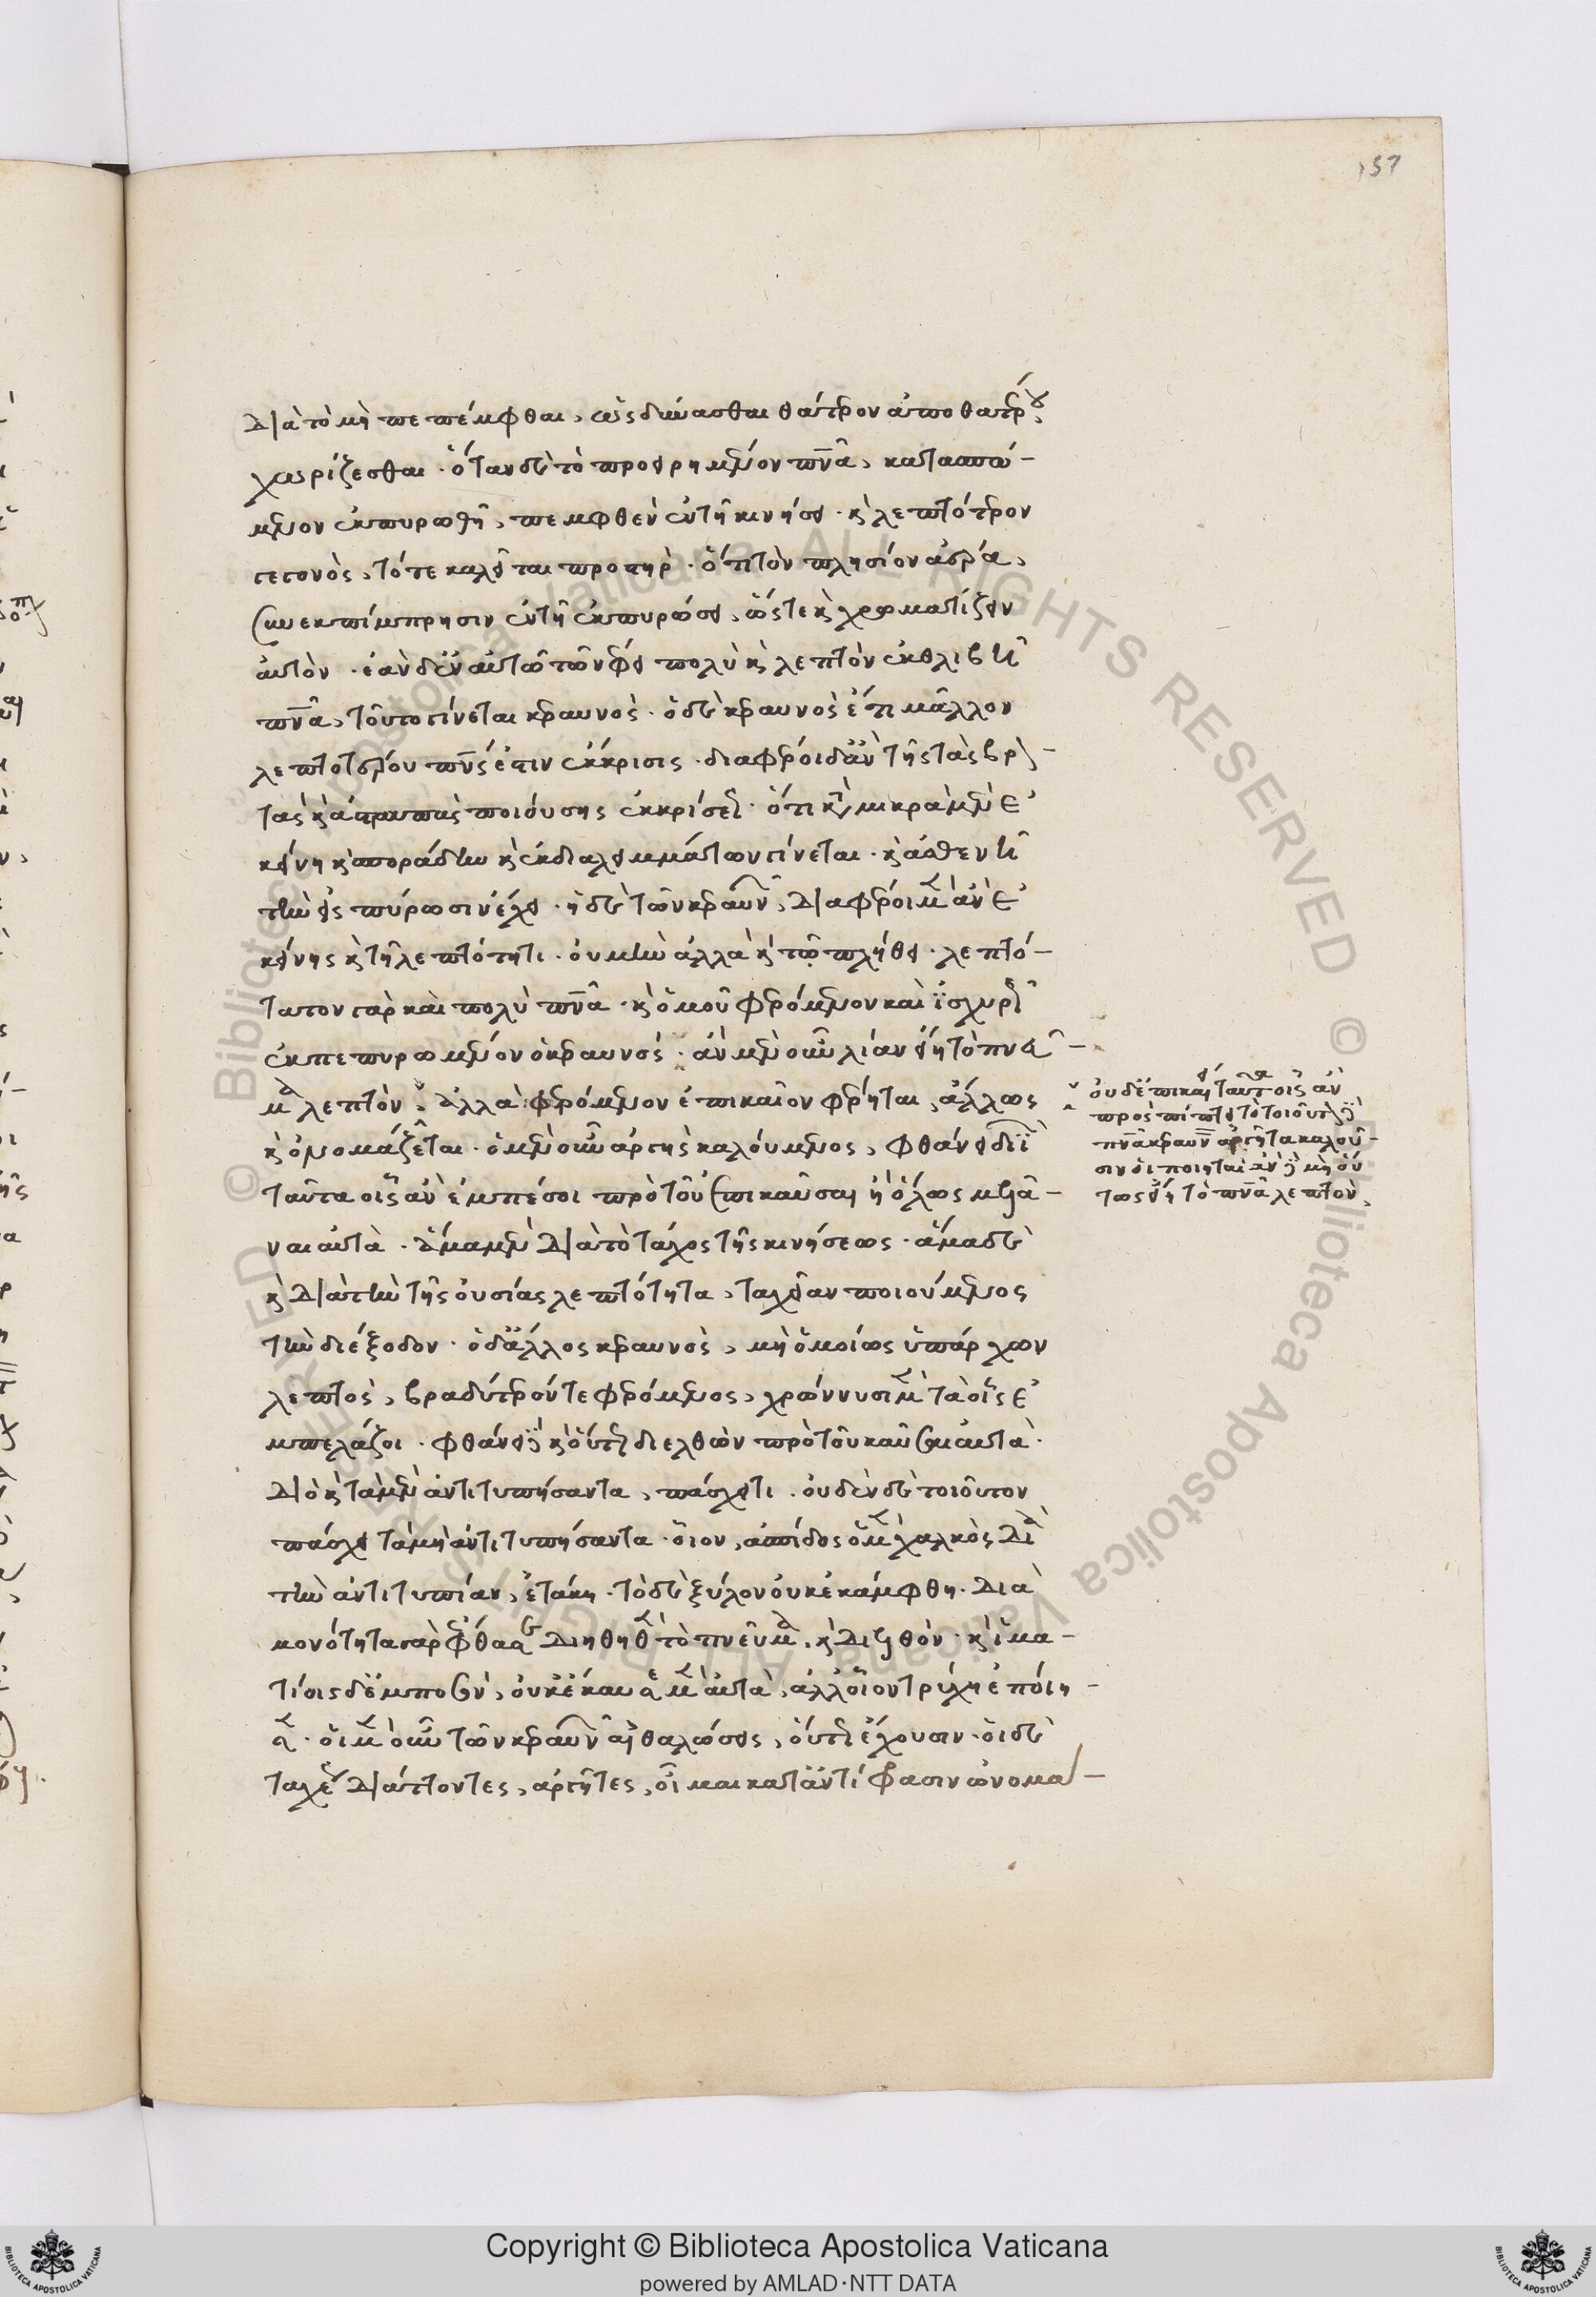 157
διὰ τὸ μὴ πεπέμφθαι, ὡς δύνασθαι θάτερον ἀπὸ θατέρου
χωρίζεσθαι · ὅταν δὲ τὸ προειρημένον πνᾶ, κατασπώ-
μενον ἐκπυρωθῆ, πεμφθὲν ἐν τῆ κινήσει · κ λεπτότερον
γεγονὸς, τότε καλεῖται πρηστήρ · ὅτι τὸν πλησίον ἀέρα,
συνεκπίμπρησιν ἐν τῆ ἐκπυρώσει, ὥστε κ χρωματίζειν
αὐτὸν · ἐὰν δ' ἐν αὐτῶ τῶ νέφει πολὺ κ λεπτὸν ἐκθλιβῆ
πνᾶ, τοῦτο γίνεται κεραυνὸς · ὁ δὲ κεραυνὸς ἔτι μᾶλλον
λεπτοτέρου πνς ἐστιν ἔκκρισις · διαφέροι δ' ἂν τῆς τὰς βρ
τὰς κ ἀστραπὰς ποιούσης ἐκκρίσεως · ὅτι
κείνη κ σποράδην κ ἐκ διαλειμμάτων γίνεται · κ ἀσθενῆ
τὴν ἐκπύρωσιν ἔχει · ἡ δὲ τῶν κεραυνῶν, διαφέροι μὲν ἂν ἐ
κείνης κ τῆ λεπτότητι · οὐ μὴν ἀλλὰ κ τῶ πλήθει · λεπτό-
τατον γὰρ καὶ πολὺ πνᾶ · κ ὁμοῦ φερόμενον καὶ ἰσχυρῶς
ἐκπεπυρωμένον ὁ κεραυνός · ἂν μὲν οὖν λίαν εἴη τὸ πνεῦ-
μα λεπτὸν, ἀλλὰ φερόμενον ἐπικαῖον φέρηται, ἄλλως
κ ὀνομάζεται · ὁ μὲν οὖν ἀργὴς καλούμενος, φθάνει διϊ
ταῦτα οἷς ἂν ἐμπέσοι πρὸ τοῦ ἐπικαῦσαι ἢ ὅλως μελᾶ-
ναι αὐτὰ · ἅμα μὲν διὰ τὸ τάχος τῆς κινήσεως · ἅμα δὲ
κ διὰ τὴν τῆς οὐσίας λεπτότητα, ταχεῖαν ποιούμενος
τὴν διέξοδον · ὁ δ' ἄλλος κεραυνὸς, μὴ ὁμοίως ὑπάρχων
λεπτὸς, βραδύτερόν τε φερόμενος, χρώννυσι μὲν τὰ οἷς ἐ
μπελάζοι · φθάνει δὲ κ οὕτως διελθὼν πρὸ τοῦ καῦσαι αὐτὰ ·
διὸ κ τὰ μὲν ἀντιτυπήσαντα, πάσχει τι · οὐδὲν δὲ τοιοῦτον
πάσχει τὰ μὴ ἀντιτυπήσαντα · οἷον, ἀσπίδος ὁ μὲν χαλκὸς διὰ
τὴν ἀντιτυπίαν, ἐτάκη · τὸ δὲ ξύλον οὐκ ἐκάμφθη · διὰ
μονότητα γὰρ ἔφθασε διηθηθὲν τὸ πνεῦμα, κ διελθόν · κ ἱμα-
τίοις δ' ἐμπεσὸν, οὐκ ἔκαυσε μὲν αὐτὰ, ἀλλ' οἷον τρύχη ἐποίη
σεν · οἱ μὲν οὖν τῶν κεραυνῶν αἰθαλώσεις, οὕτως ἔχουσιν · οἱ δὲ
ταχέως διάττοντες, ἀργῆτες, οἳ καὶ κατ' ἀντίφασιν ὠνομα-
οὐδ' ἐπικαίει ταῦτα οἷς ἂν
προσπίπτει τὸ τοιοῦτον δὲ
πνᾶ κεραυν ἀργῆτα καλοῦ-
σιν οἱ ποιηταὶ ἂν δὲ μὴ οὕ
τως εἴη τὸ πνᾶ λεπτὸν,
Copyright © Biblioteca Apostolica Vaticana
powered by AMLAD·NTT DATA